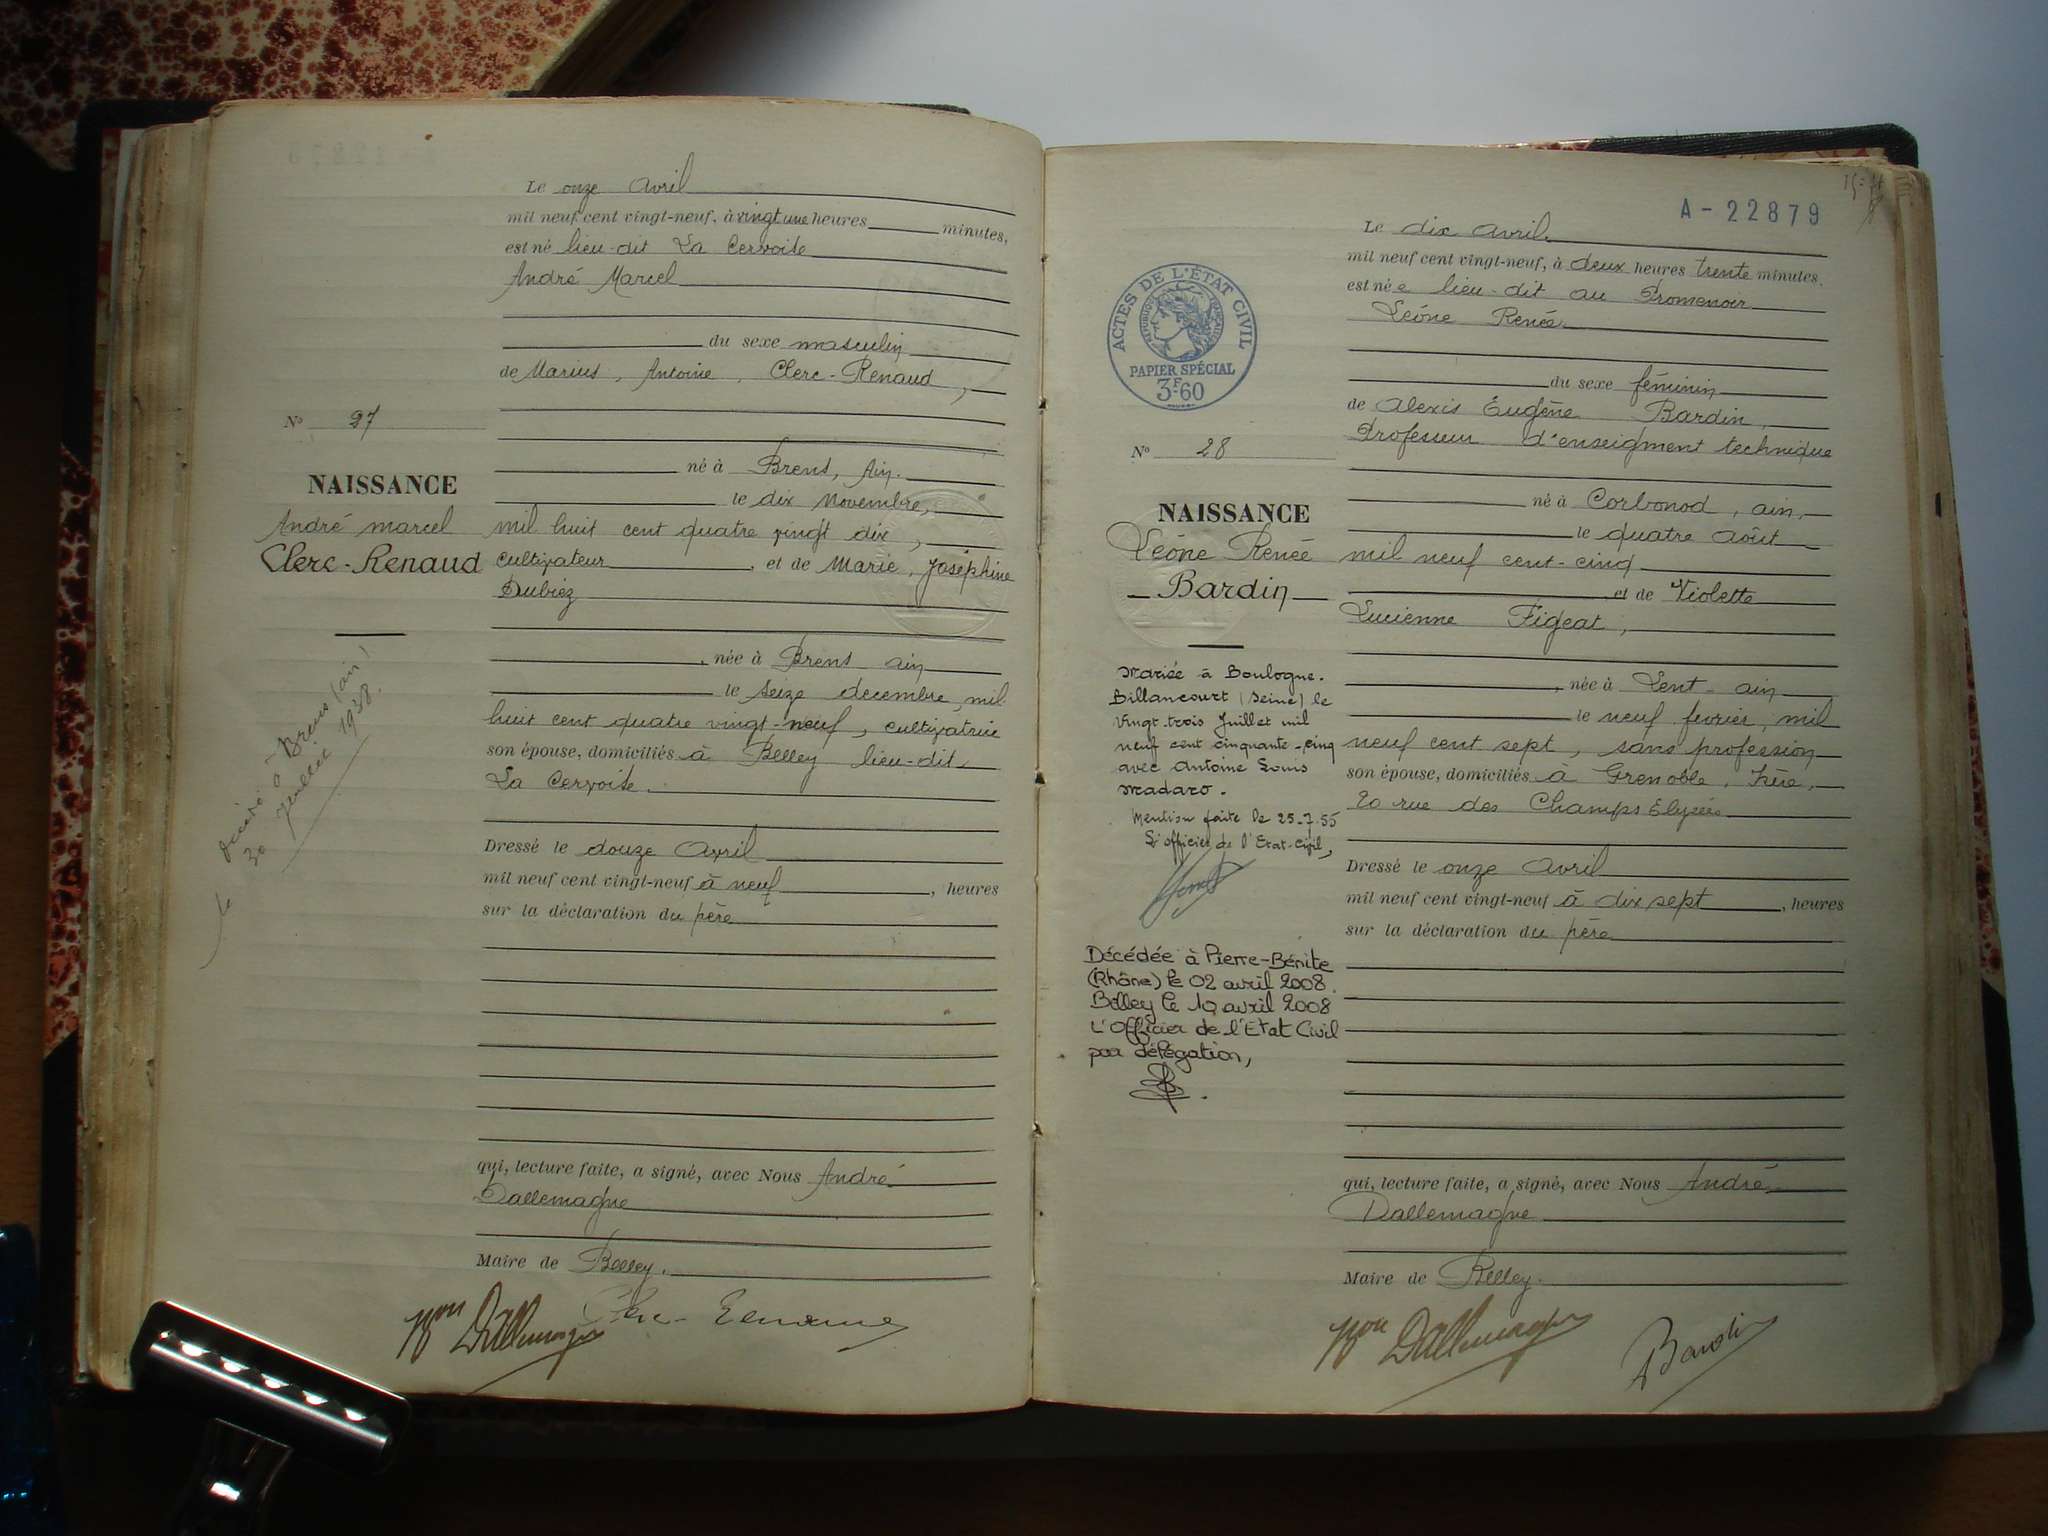 Le onze Avril
mil neuf cent vingt-neuf, à vingt une heures minutes,
est né lieu-dit La Cervoite
André Marcel
du sexe masculin
de Marius, Antoine, Clerc-Renaud,
né à Brens, Ain.
le dix Novembre,
mil huit cent quatre vingt dix,
cultivateur, et de Marie, Joséphine
Dubiez
, née à Brens ain
le seize decembre, mil
huit cent quatre vingt-neuf, cultivatrice
son épouse, domiciliés à Belley lieu-dit
La Cervoite.
Dressé le douze Avril
mil neuf cent vingt-neuf à neuf, heures
sur la déclaration du père
qui, lecture faite, a signé, avec Nous André
Dallemagne
Maire de Belley.
Nº 27
NAISSANCE
André marcel
Clerc-Renaud
décédé à Brens (ain)
le 30 juillet 1938.
A-22879
ACTES DE L'ÉTAT CIVIL
RÉPUBLIQUE FRANÇAISE
PAPIER SPÉCIAL
3F60
Nº 28
NAISSANCE
Léone Renée
Bardin
Mariée à Boulogne-
Billancourt (Seine) le
vingt-trois Juillet mil
neuf cent cinquante-cinq
avec Antoine Louis
Madaro.
Mention faite le 25-7-55
L'officier de l'Etat-Civil,
Décédée à Pierre-Bénite
(Rhône) le 02 avril 2008.
Belley le 10 avril 2008
L'Officier de l'Etat Civil
par délégation,
Le dix Avril
mil neuf cent vingt-neuf, à deux heures trente minutes.
est née lieu-dit au Promenoir
Léone Renée
du sexe féminin
de Alexis Eugène Bardin,
Professeur d'enseigment technique
né à Corbonod, ain,
le quatre août
mil neuf cent-cinq
et de Violette
Lucienne Figeat,
, née à Lent-ain
le neuf fevrier, mil
neuf cent sept, sans profession
son épouse, domiciliés à Grenoble, Isère,
20 rue des Champs Elysées
Dressé le onze Avril
mil neuf cent vingt-neuf à dix sept, heures
sur la déclaration du père
qui, lecture faite, a signé, avec Nous André
Dallemagne
Maire de Belley.
Dallemagne
Bardin